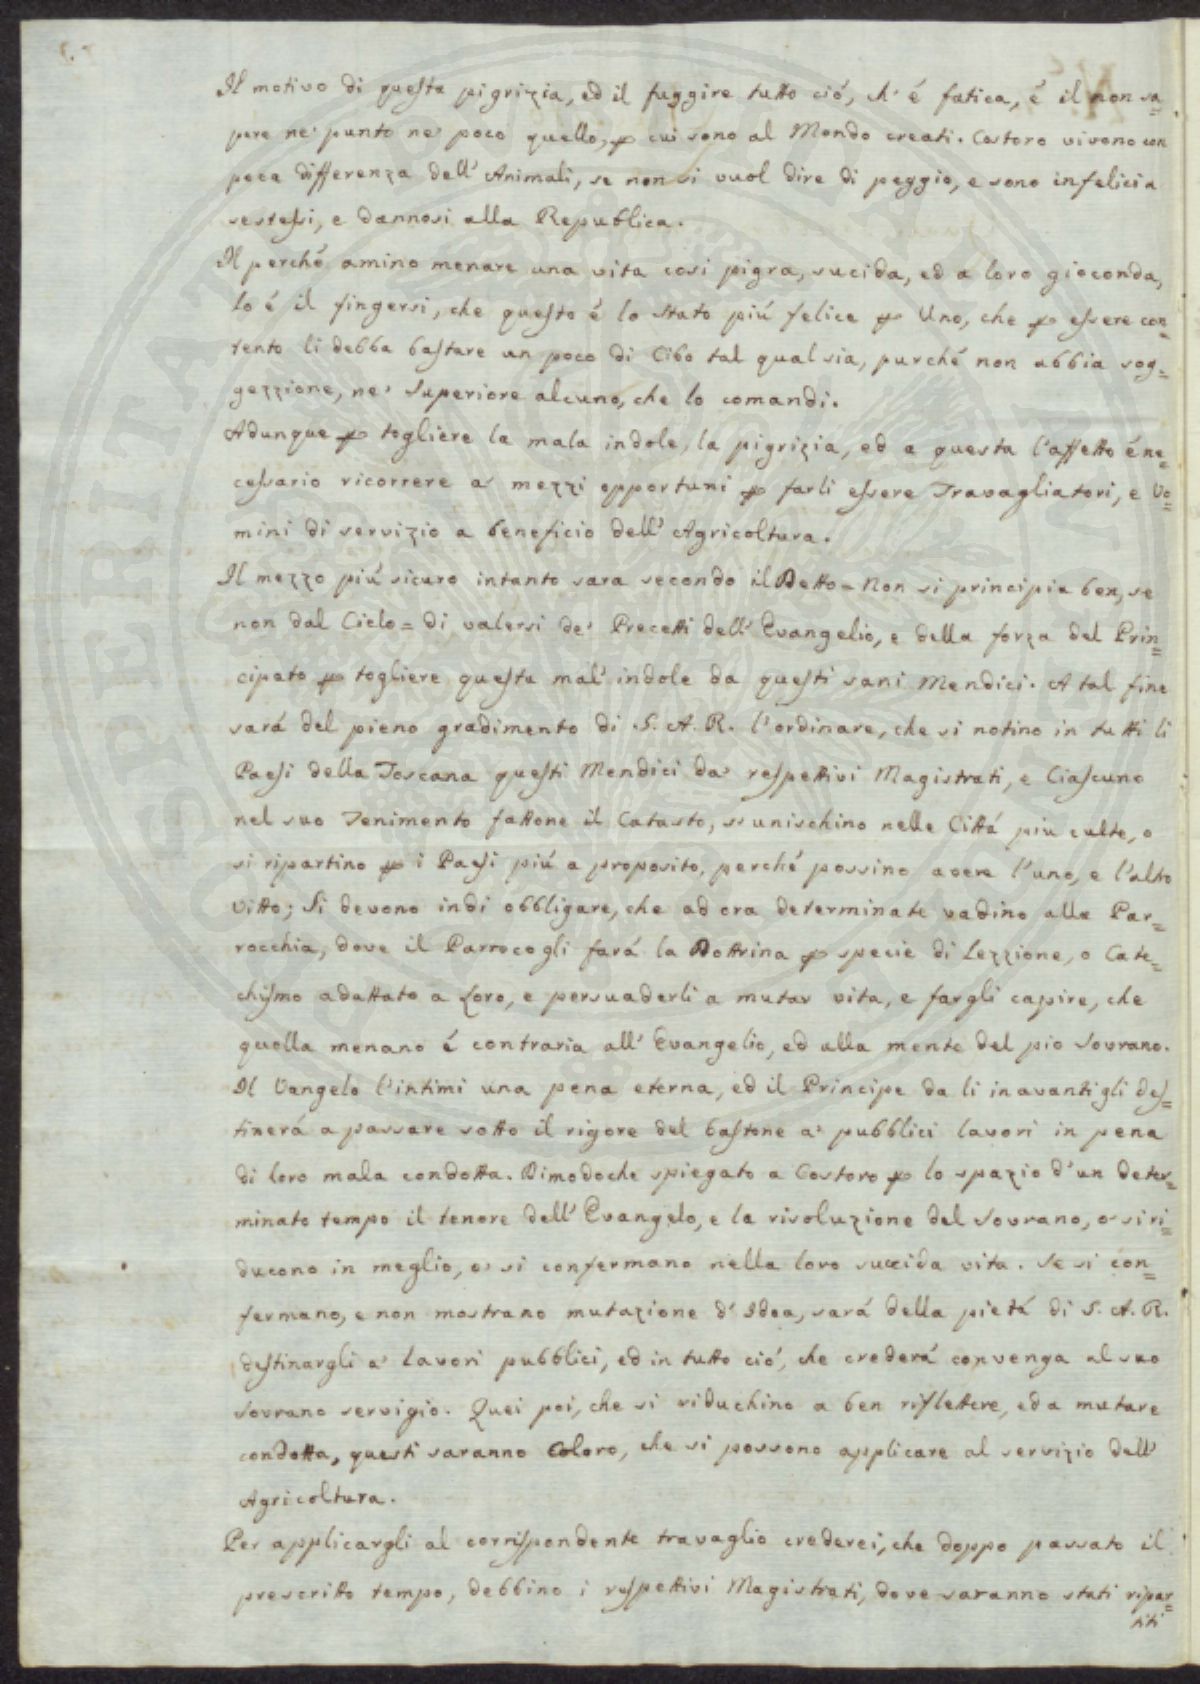 Il motivo di questa pigrizia, ed il fuggire tutto ció, ch' é fatica, é il non sa=
pere ne' punto ne' poco quello, ꝑ cui sono al Mondo creati. Costoro vivono con
poca differenza dell' Animali, se non si vuol dire di peggio, e sono infelici a
sestessi, e dannosi alla Republica.
Il perché amino menare una vita cosi pigra, sucida, ed a loro gioconda,
lo é il fingersi, che questo é lo stato piú felice ꝑ Uno, che ꝑ essere con=
tento li debba bastare un poco di Cibo tal qual sia, purché non abbia sog=
gezzione, ne' Superiore alcuno, che lo comandi.
Adunque ꝑ togliere la mala indole, la pigrizia, ed a questa l'affetto é ne=
cessario ricorrere a' mezzi opportuni ꝑ farli essere Travagliatori, e Vo=
mini di servizio a beneficio dell' Agricoltura.
Il mezzo piú sicuro intanto sara secondo il Detto = Non si principia ben, se
non dal Cielo = di valersi de' Precetti dell' Evangelio, e della forza del Prin=
cipato ꝑ togliere questa mal' indole da questi sani Mendici. A tal fine
sará del pieno gradimento di S. A. R. l'ordinare, che si notino in tutti li
Paesi della Toscana questi Mendici da' respettivi Magistrati, e Ciascuno
nel suo Tenimento fattone il Catasto, si unischino nelle Cittá piu culte, o
si ripartino ꝑ i Paesi piú a proposito, perché possino avere l'uno, e l'altro
Vitto; Si devono indi obbligare, che ad ora determinate vadino alla Par=
rocchia, dove il Parroco gli fará la Dottrina ꝑ specie di Lezzione, o Cate=
chismo adattato a Loro, e persuaderli a mutar vita, e fargli capire, che
quella menano é contraria all' Evangelio, ed alla mente del pio Sovrano.
Il Vangelo l'intimi una pena eterna, ed il Principe da li inavanti gli des=
tinerá a passare sotto il rigore del bastone a' pubblici lavori in pena
di loro mala condotta. Dimodoche spiegato a Costoro ꝑ lo spazio d'un deter=
minato tempo il tenore dell' Evangelo, e la risoluzione del Sovrano, o' si ri=
ducono in meglio, o' si confermano nella loro succida vita. Se si con=
fermano, e non mostrano mutazione d' Idea, sará della pietá di S. A. R.
destinargli a' lavori pubblici, ed in tutto ció, che crederá convenga al suo
Sovrano servigio. Quei poi, che si riduchino a ben riflettere, ed a mutare
condotta, questi saranno Coloro, che si possono applicare al servizio dell'
Agricoltura.
Per applicargli al corrispondente travaglio crederei, che doppo passato il
prescritto tempo, debbino i respettivi Magistrati, dove saranno stati ripar=
titi